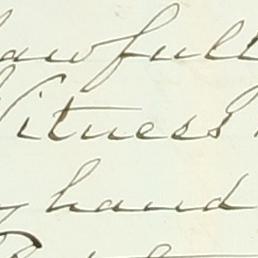 lawfull
Witness
hand